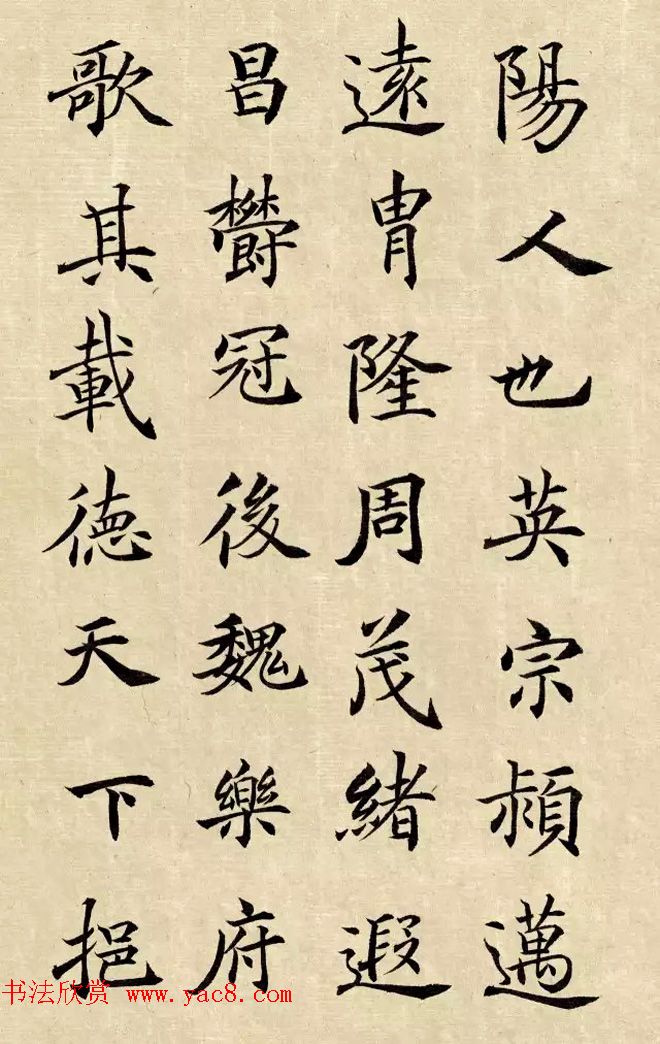 陽人也英宗頴邁
遠胄隆周茂緒遐
昌欝冠後魏樂府
歌其載德天下挹
书法欣赏 www.yac8.com